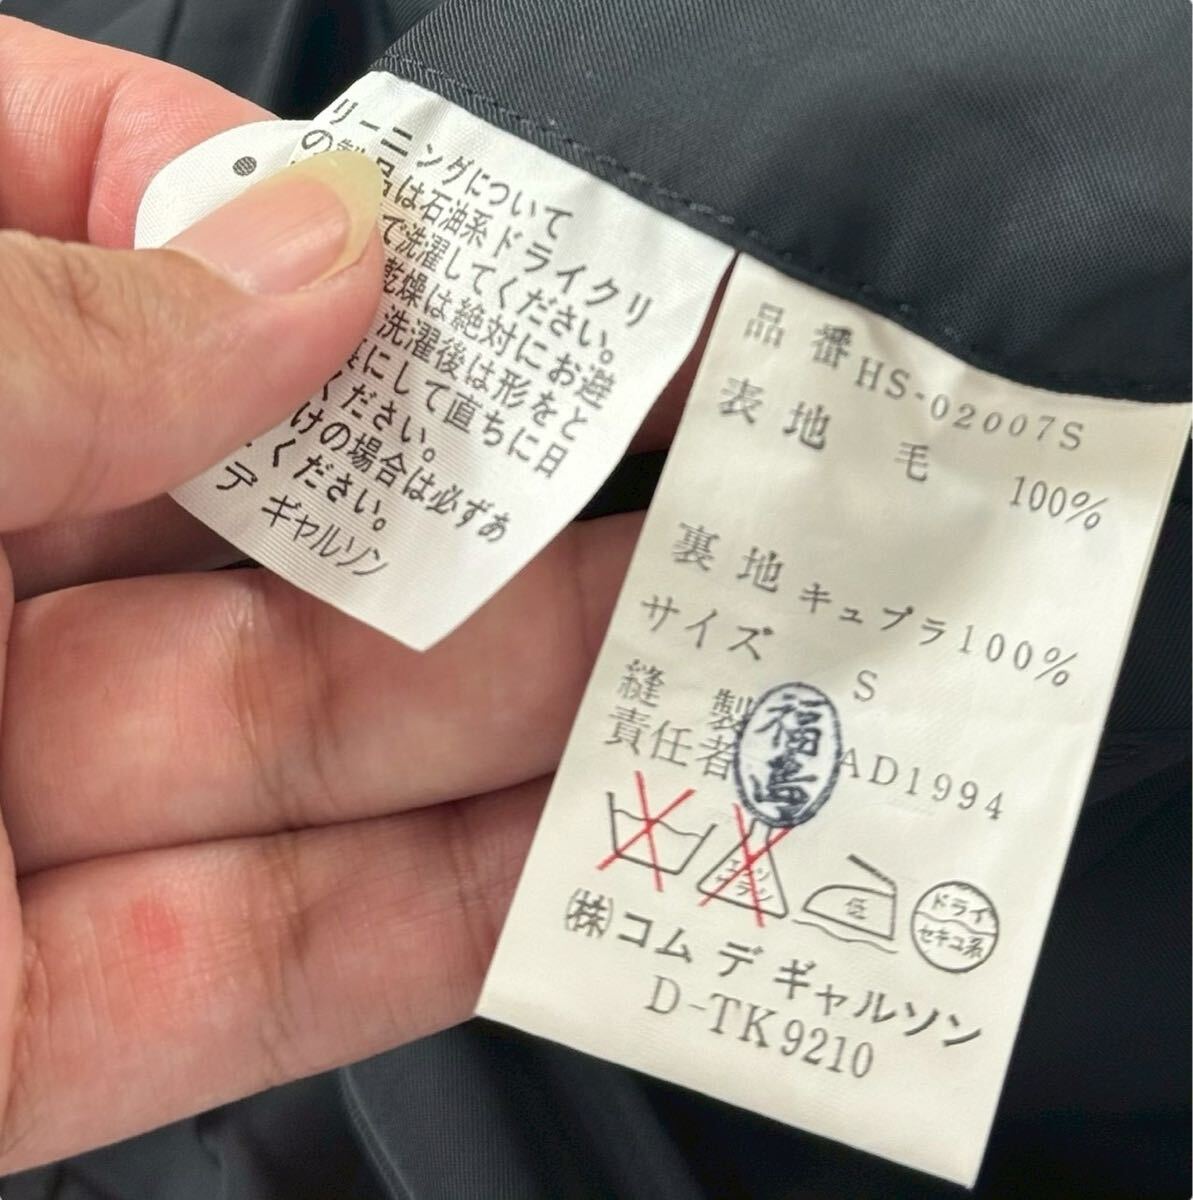 リーニングについて
の製品は石油系ドライクリ
で洗濯してください。
乾燥は絶対にお避
洗濯後は形をと
にして直ちに日
ください。
けの場合は必ずあ
ください。
デ ギャルソン
品番 HS-02007S
表地 毛 100%
裏地 キュプラ100%
サイズ S
縫製
責任者 福島 AD1994
エンソ
サラシ
低
ドライ
セキユ系
(株)コム デ ギャルソン
D-TK9210